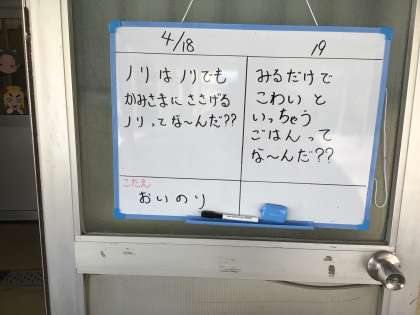 4/18
ノリはノリでも
かみさまにささげる
ノリってな〜んだ??
こたえ
おいのり
19
みるだけで
こわいと
いっちゃう
ごはんって
な〜んだ??